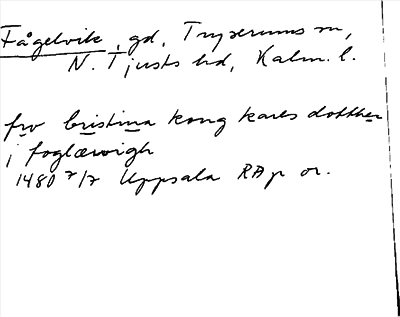 Fågelvik, gd, Tryserums sn,
N. Tjusts hd, Kalm. l.
frv cristina kong karls dotther
i foglæwigh
1480 7/7 Uppsala RAp or.